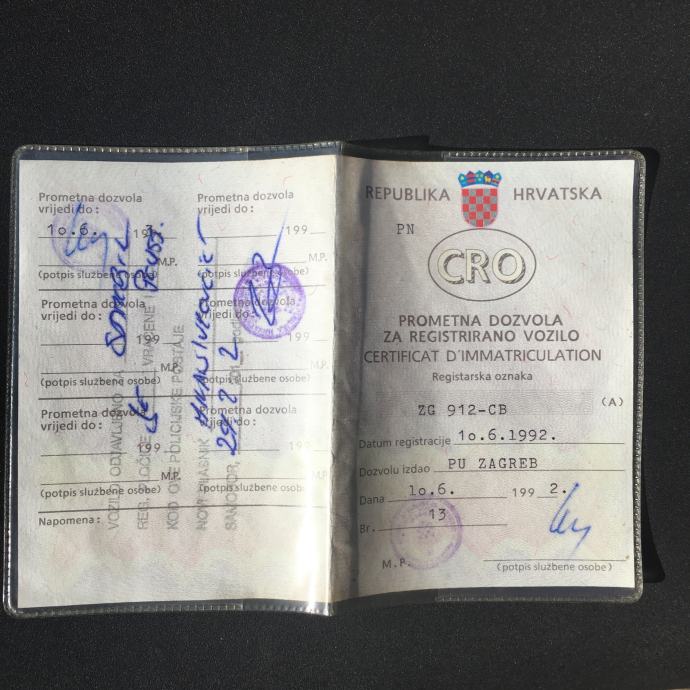 Prometna dozvola
vrijedi do:
10.6. 193
M.P.
(potpis službene osobe)
Prometna dozvola
vrijedi do:
199
M.P.
(potpis službene osobe)
Prometna dozvola
vrijedi do:
199
M.P.
(potpis službene osobe)
Napomena:
Prometna dozvola
vrijedi do:
199
M.P.
(potpis službene osobe)
Prometna dozvola
vrijedi do:
199
M.P.
(potpis službene osobe)
Prometna dozvola
vrijedi do:
199
M.P.
(potpis službene osobe)
VOZILO ODJAVLJENO ZA
REG. PLOČICE VRAĆENE I
KOD OVE POLICIJSKE POSTAJE
NOVI VLASNIK
SAMOBOR,
REPUBLIKA HRVATSKA
PN
CRO
PROMETNA DOZVOLA
ZA REGISTRIRANO VOZILO
CERTIFICAT D'IMMATRICULATION
Registarska oznaka
ZG 912-CB (A)
Datum registracije 10.6.1992.
Dozvolu izdao PU ZAGREB
Dana 10.6. 1992.
Br. 13
M.P.
(potpis službene osobe)